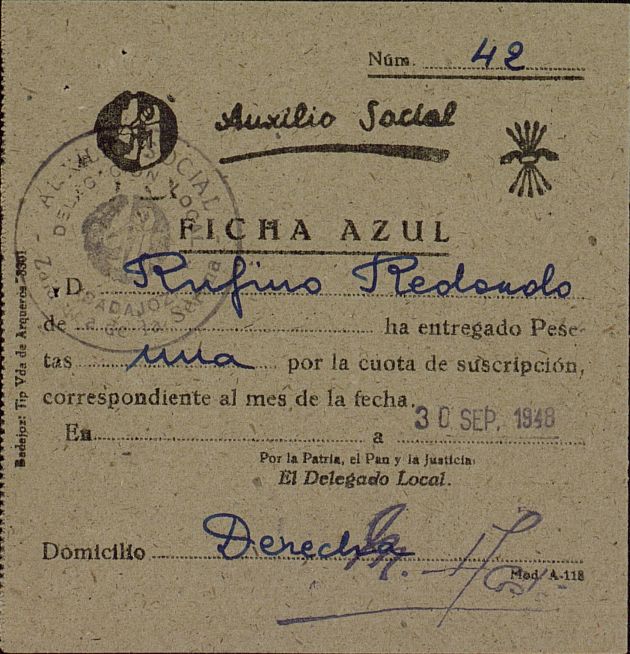 Núm. 42
Auxilio Social
AUXILIO SOCIAL
DELEGACIÓN LOCAL
BADAJOZ
FICHA AZUL
D. Rufino Redondo
de ha entregado Pese-
tas una por la cuota de suscripción,
correspondiente al mes de la fecha.
En a 30 SEP. 1948
Por la Patria, el Pan y la Justicia:
El Delegado Local.
Domicilio Derecha
Mod. A-118
Badajoz: Tip Vda de Arqueros